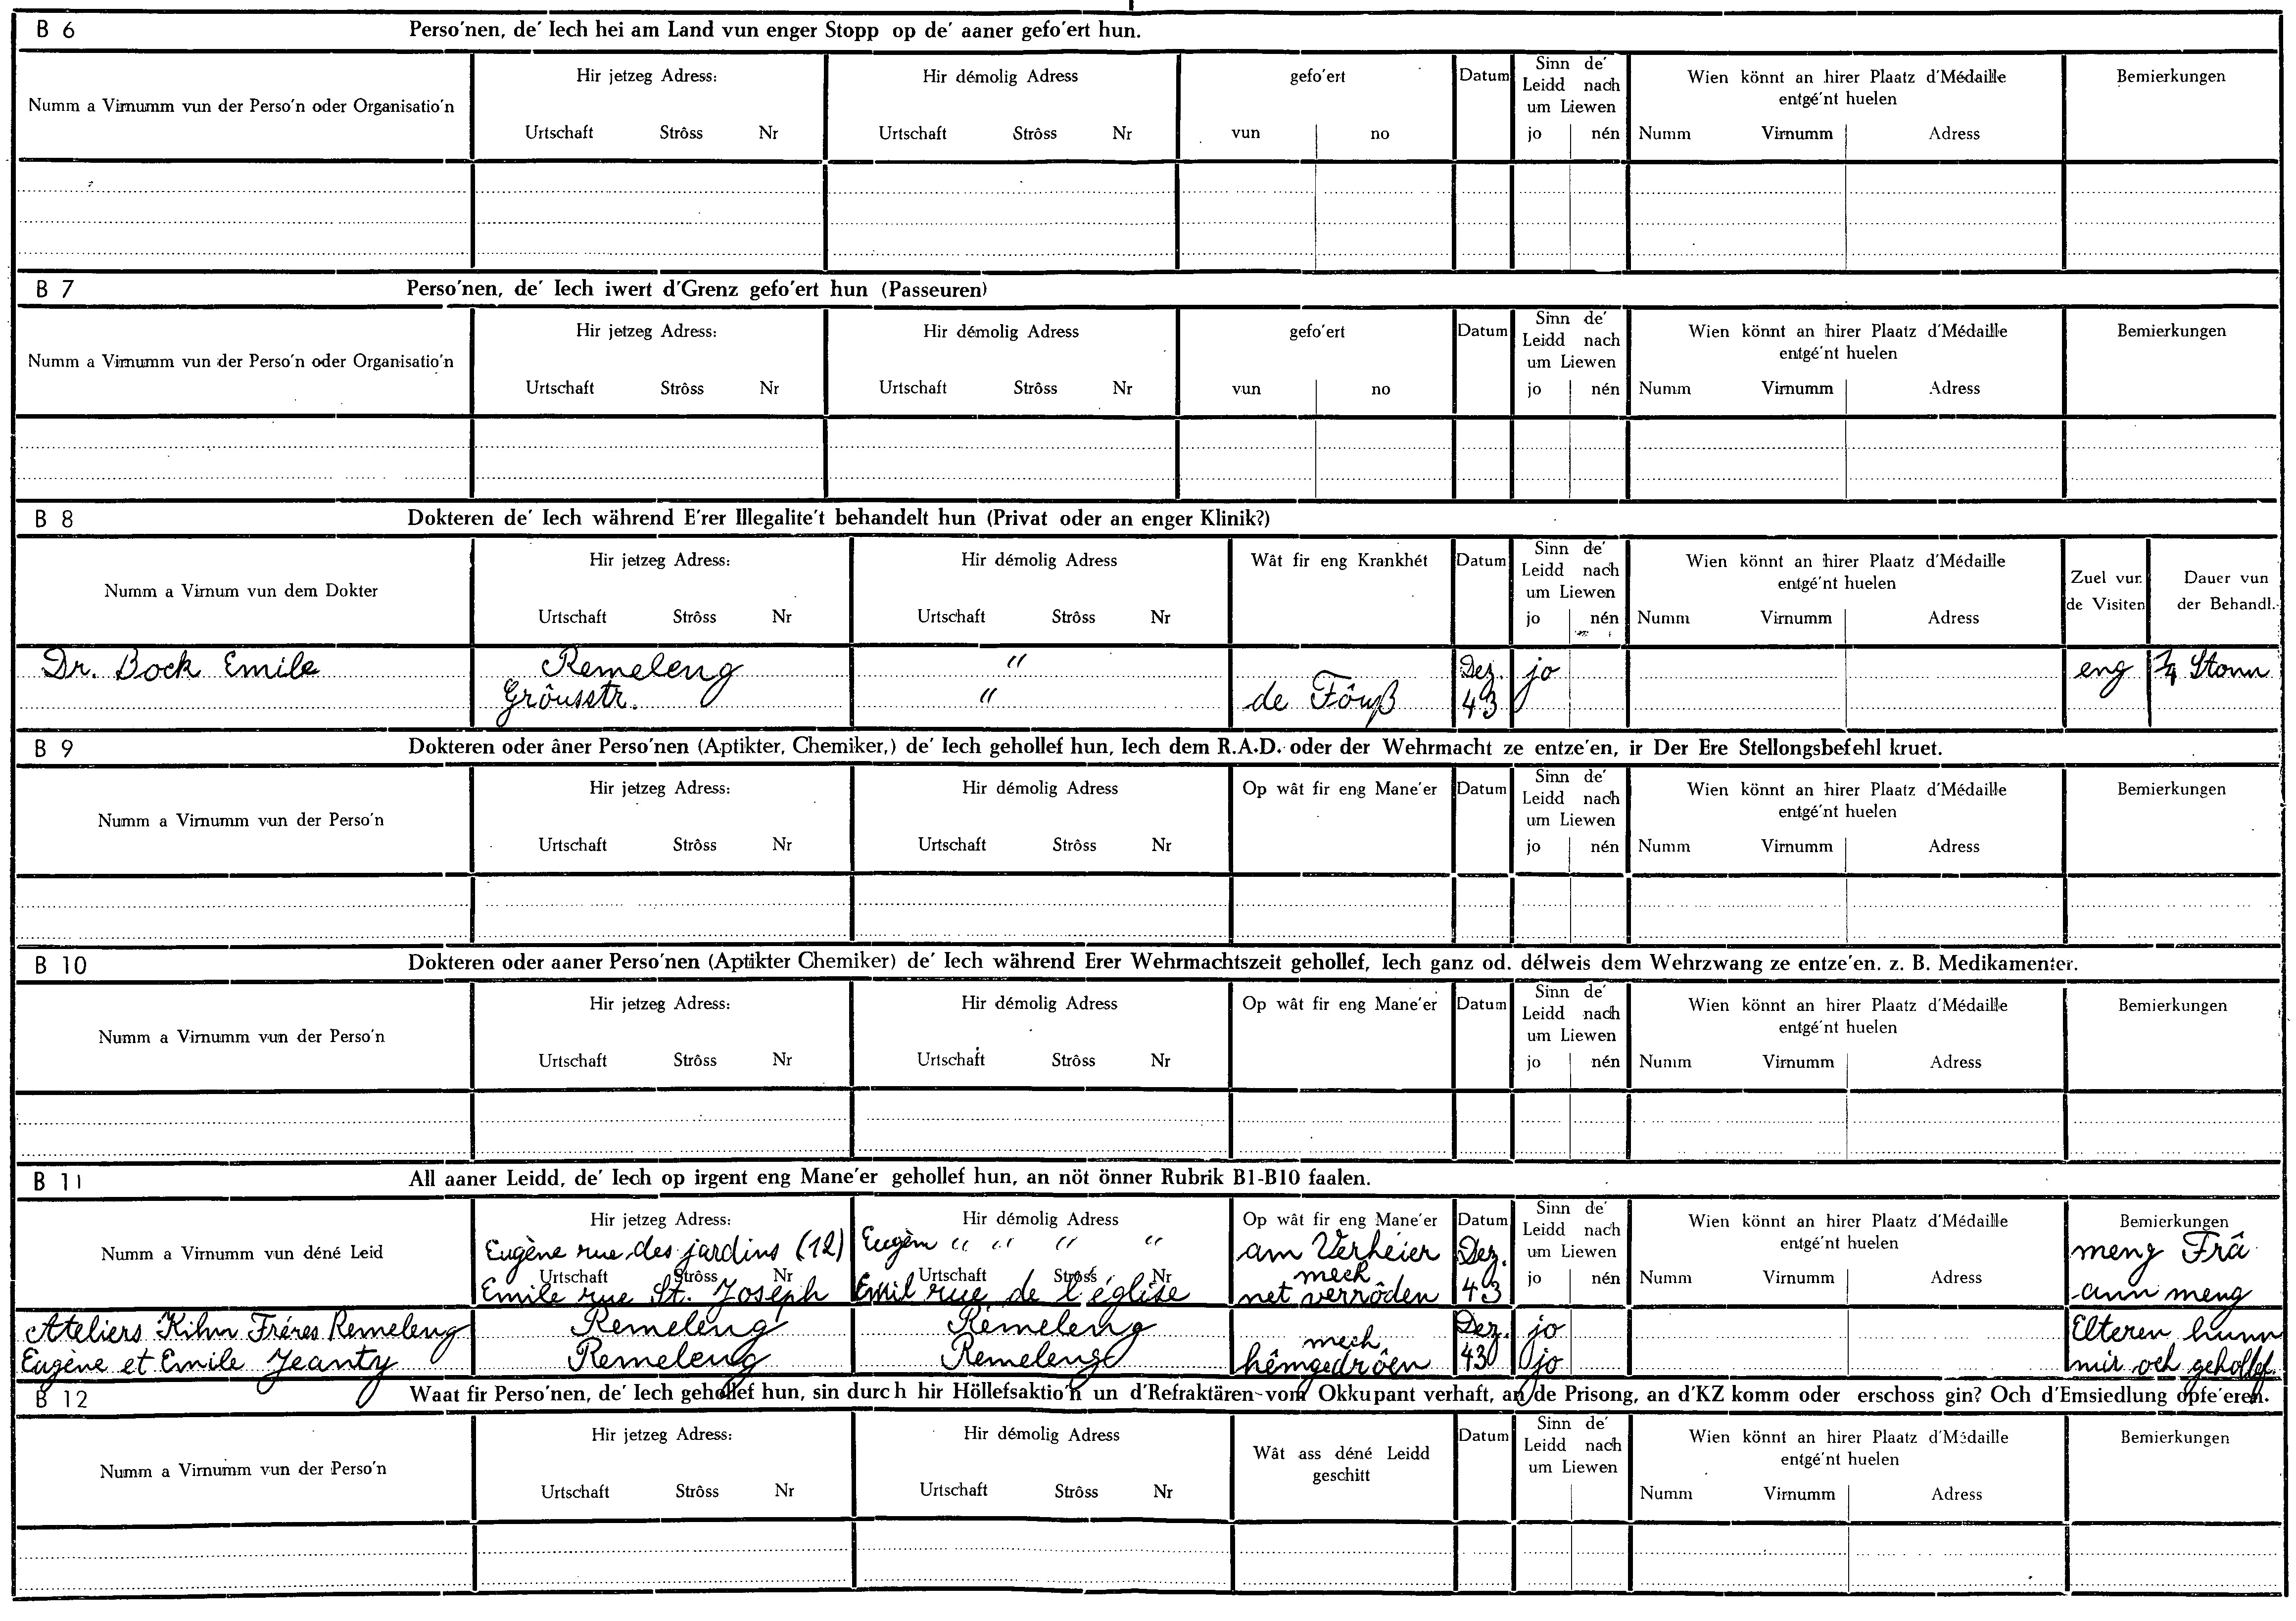 B 6 Perso'nen, de' Iech hei am Land vun enger Stopp op de' aaner gefo'ert hun.
Numm a Virnumm vun der Perso'n oder Organisatio'n
Hir jetzeg Adress:
Urtschaft Strôss Nr
Hir démolig Adress
Urtschaft Strôss Nr
gefo'ert
vun no
Datum
Sinn de'
Leidd nach
um Liewen
jo nén
Wien könnt an hirer Plaatz d'Médaille
entgé'nt huelen
Numm Virnumm Adress
Bemierkungen
B 7 Perso'nen, de' Iech iwert d'Grenz gefo'ert hun (Passeuren)
Numm a Virnumm vun der Perso'n oder Organisatio'n
Hir jetzeg Adress:
Urtschaft Strôss Nr
Hir démolig Adress
Urtschaft Strôss Nr
gefo'ert
vun no
Datum
Sinn de'
Leidd nach
um Liewen
jo nén
Wien könnt an hirer Plaatz d'Médaille
entgé'nt huelen
Numm Virnumm Adress
Bemierkungen
B 8 Dokteren de' Iech während E'rer Illegalite't behandelt hun (Privat oder an enger Klinik?)
Numm a Virnum vun dem Dokter
Hir jetzeg Adress:
Urtschaft Strôss Nr
Hir démolig Adress
Urtschaft Strôss Nr
Wât fir eng Krankhét
Datum
Sinn de'
Leidd nach
um Liewen
jo nén
Wien könnt an hirer Plaatz d'Médaille
entgé'nt huelen
Numm Virnumm Adress
Zuel vun
de Visiten
Dauer vun
der Behandl.
Dr. Bock Emile Remeleng " Dez. jo eng ¼ Stonn
Grôusstr. " de Fôuß 43
B 9 Dokteren oder âner Perso'nen (Aptikter, Chemiker,) de' Iech gehollef hun, Iech dem R.A.D. oder der Wehrmacht ze entze'en, ir Der Ere Stellongsbefehl kruet.
Numm a Virnumm vun der Perso'n
Hir jetzeg Adress:
Urtschaft Strôss Nr
Hir démolig Adress
Urtschaft Strôss Nr
Op wât fir eng Mane'er
Datum
Sinn de'
Leidd nach
um Liewen
jo nén
Wien könnt an hirer Plaatz d'Médaille
entgé'nt huelen
Numm Virnumm Adress
Bemierkungen
B 10 Dokteren oder aaner Perso'nen (Aptikter Chemiker) de' Iech während Erer Wehrmachtszeit gehollef, Iech ganz od. délweis dem Wehrzwang ze entze'en. z. B. Medikamenter.
Numm a Virnumm vun der Perso'n
Hir jetzeg Adress:
Urtschaft Strôss Nr
Hir démolig Adress
Urtschaft Strôss Nr
Op wât fir eng Mane'er
Datum
Sinn de'
Leidd nach
um Liewen
jo nén
Wien könnt an hirer Plaatz d'Médaille
entgé'nt huelen
Numm Virnumm Adress
Bemierkungen
B 11 All aaner Leidd, de' Iech op irgent eng Mane'er gehollef hun, an nöt önner Rubrik B1-B10 faalen.
Numm a Virnumm vun déné Leid
Hir jetzeg Adress:
Eugène rue des jardins (12)
Urtschaft Strôss Nr
Emile rue St. Joseph
Hir démolig Adress
Eugèn " " " "
Urtschaft Strôss Nr
Emil rue de l'église
Op wât fir eng Mane'er
am Verheier
mech
net verrôden
Datum
Dez.
43
Sinn de'
Leidd nach
um Liewen
jo nén
Wien könnt an hirer Plaatz d'Médaille
entgé'nt huelen
Numm Virnumm Adress
Bemierkungen
meng Frâ
ann meng
Ateliers Kihn Fréres Remeleng Remeleng Remeleng mech Dez. jo Elteren hunn
Eugène et Emile Jeanty Remeleng Remeleng hêmgedrôen 43 jo mir och gehollef.
B 12 Waat fir Perso'nen, de' Iech gehollef hun, sin durch hir Höllefsaktio'n un d'Refraktären vom Okkupant verhaft, an de Prisong, an d'KZ komm oder erschoss gin? Och d'Emsiedlung opfe'eren.
Numm a Virnumm vun der Perso'n
Hir jetzeg Adress:
Urtschaft Strôss Nr
Hir démolig Adress
Urtschaft Strôss Nr
Wât ass déné Leidd
geschitt
Datum
Sinn de'
Leidd nach
um Liewen
Wien könnt an hirer Plaatz d'Médaille
entgé'nt huelen
Numm Virnumm Adress
Bemierkungen